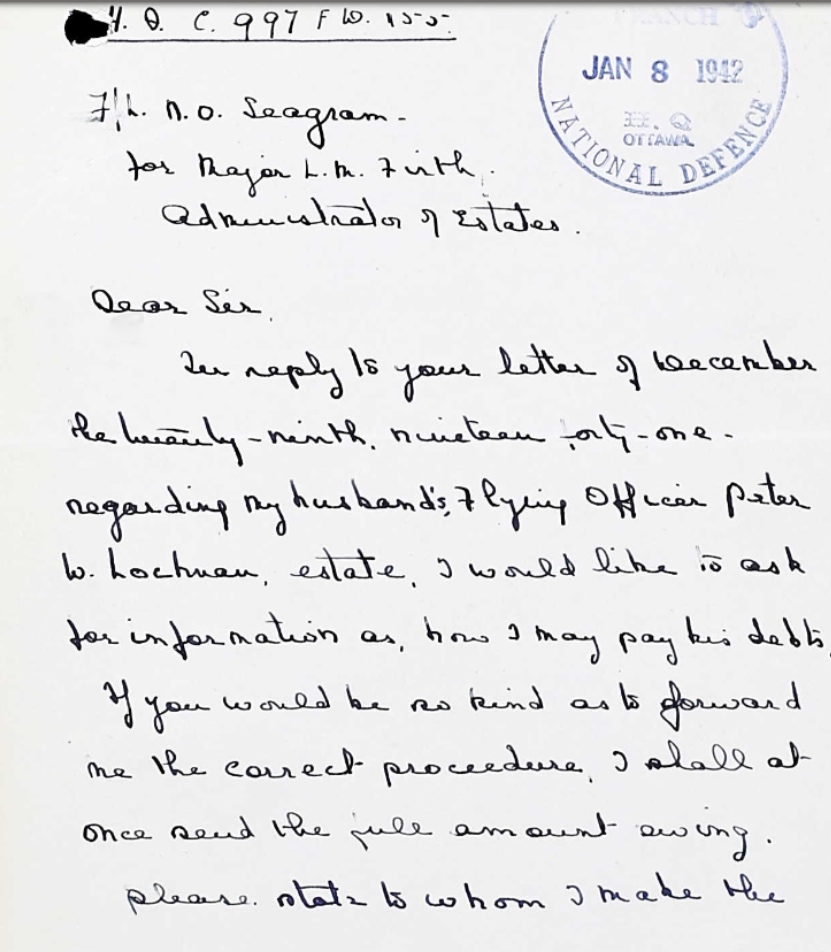 H. Q. C. 997 F W. 155.
BRANCH
JAN 8 1942
H. Q.
OTTAWA
NATIONAL DEFENCE
F/L. N. O. Seagram -
for Major L. M. Firth.
Administrator of Estates.
Dear Sir,
In reply to your letter of December
the twenty-ninth, nineteen forty-one -
regarding my husband's, Flying Officer Peter
W. Lochnan, estate, I would like to ask
for information as, how I may pay his debts.
If you would be so kind as to forward
me the correct proceedure, I shall at
once send the full amount owing.
Please state to whom I make the